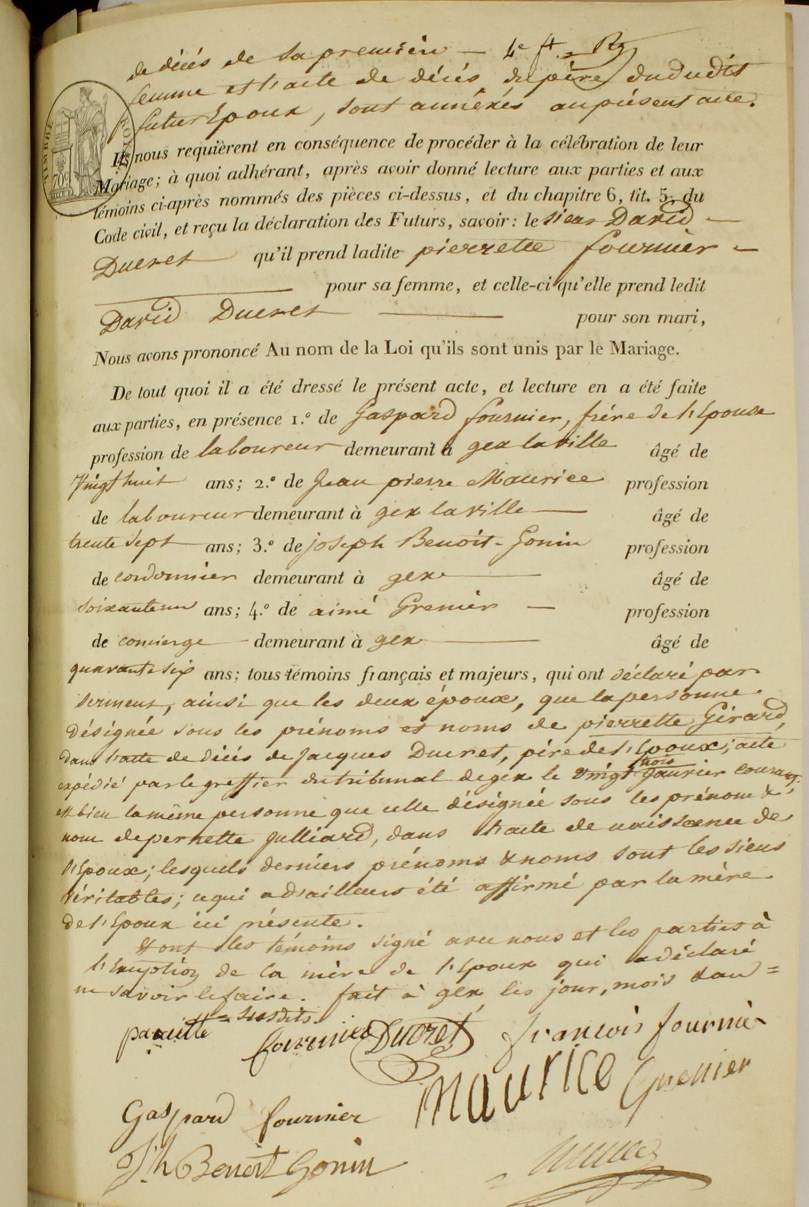 de décés de sa première — 4e ft.
femme et l'acte de décés du père du dudit
futur Epoux, sont annéxés au présent acte.
TIMBRE ROYAL
70c
Ils nous requièrent en conséquence de procéder à la célébration de leur
Mariage; à quoi adhérant, après avoir donné lecture aux parties et aux
témoins ci-après nommés des pièces ci-dessus, et du chapitre 6, tit. 5, du
Code civil, et reçu la déclaration des Futurs, savoir: le sieur David —
Ducret qu'il prend ladite pierrette fournier —
— pour sa femme, et celle-ci qu'elle prend ledit
David Ducret — pour son mari,
Nous avons prononcé Au nom de la Loi qu'ils sont unis par le Mariage.
De tout quoi il a été dressé le présent acte, et lecture en a été faite
aux parties, en présence 1.º de Gaspard fournier, frère de l'Epouse
profession de laboureur demeurant à gex la ville âgé de
vingt huit ans; 2.º de Jean pierre Maurice profession
de laboureur demeurant à gex la ville — âgé de
trente sept ans; 3.º de joseph Benoit-Gonin profession
de cordonnier demeurant à gex — âgé de
soixante un ans; 4.º de aimé Grenier — profession
de concierge — demeurant à gex — âgé de
quarante six ans; tous témoins français et majeurs, qui ont déclaré par
serment, ainsi que les deux époux, que la personne
désignée sous les prénoms et noms de pierrette Girard,
dans l'acte de décés de Jacques Ducret, père de l'Epoux; acte
expédié par le greffier du tribunal de gex le vingt trois Janvier courant,
est bien la même personne que celle désignée sous les prénom &
nom de pernette Julliard, dans l'acte de naissance de
l'Epoux; lesquels derniers prénoms & noms sont les siens
véritables; ce qui a d'ailleurs été affirmé par la mère
de l'Epoux ici présente.
Et ont les témoins signé avec nous et les parties à
l'exception de la mère de l'Epoux qui a déclaré
ne savoir le faire. fait à gex, les jour, mois & an =
= susdits.
fournier Ducret françois fournier
Maurice Grenier
Gaspard fournier
Jh Benoit Gonin